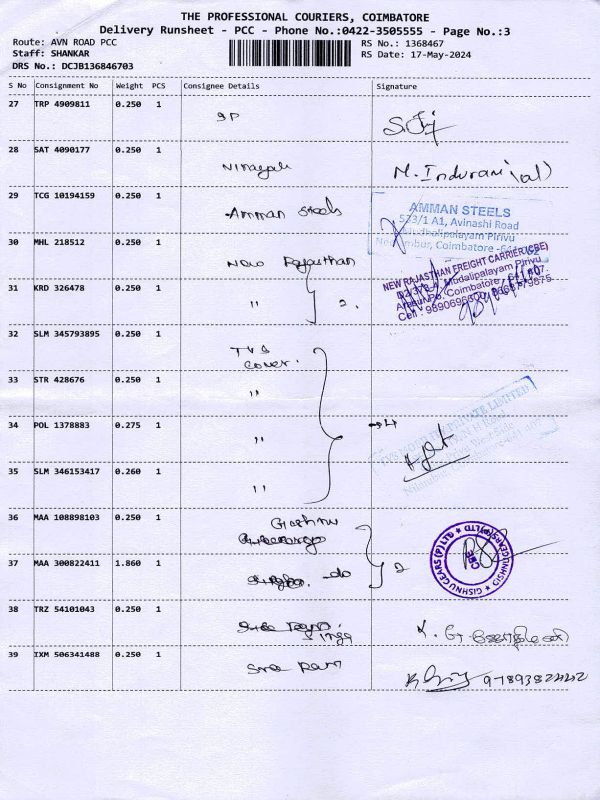 THE PROFESSIONAL COURIERS, COIMBATORE
Delivery Runsheet - PCC - Phone No.:0422-3505555 - Page No.:3
Route: AVN ROAD PCC
RS No.: 1368467
Staff: SHANKAR
RS Date: 17-May-2024
DRS No.: DCJB136846703
S No Consignment No Weight PCS Consignee Details Signature
27 TRP 4909811 0.250 1
28 SAT 4090177 0.250 1 Vinayak M. Indurani (al)
29 TCG 10194159 0.250 1 Amman Steels
AMMAN STEELS
523/1 A1, Avinashi Road
Mudhalipalayam Pirivu
Coimbatore
30 MHL 218512 0.250 1 New Rajasthan
NEW RAJASTHAN FREIGHT CARRIER(CBE)
Mudalipalayam Pirivu
Coimbatore - 641 407.
31 KRD 326478 0.250 1 " 2.
32 SLM 345793895 0.250 1 TVS
cover.
33 STR 428676 0.250 1 "
34 POL 1378883 0.275 1 " → 4
PRIVATE LIMITED
35 SLM 346153417 0.260 1 "
36 MAA 108898103 0.250 1 Gishnu
GISHNU GEARS (P) LTD
CBE
37 MAA 300822411 1.860 1 do 2
38 TRZ 54101043 0.250 1
39 IXM 506341488 0.250 1 Sree Ram